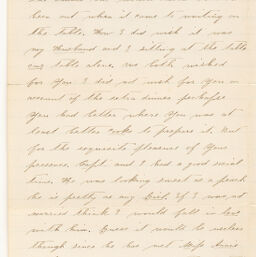 been out when it came to waiting on
the table. How I did wish it was
my Husband and I sitting at the table
table alone. We both wished
for you I did not wish for you on
account of the extra dinner perhaps
You had better where you was at
least better cooks to prepare it. But
for the exquisite pleasure of Your
presence. Capt. and I had a good social
time. He was looking sweet as a peach
he is pretty as any Girl. If I was not
married think I would fall in love
with him. Guess it would be useless
though since he has met Miss Annie